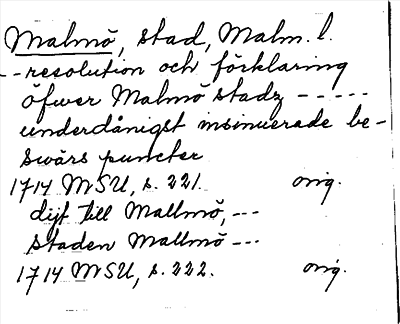 Malmö, stad, Malm. l.
-- resolution och förklaring
öfwer Malmö stadz -----
underdånigst insinuerade be-
swärs puncter
1714 MSU, s. 221. orig.
dijt till Mallmö, ---
staden Mallmö ---
1714 MSU, s. 222. orig.